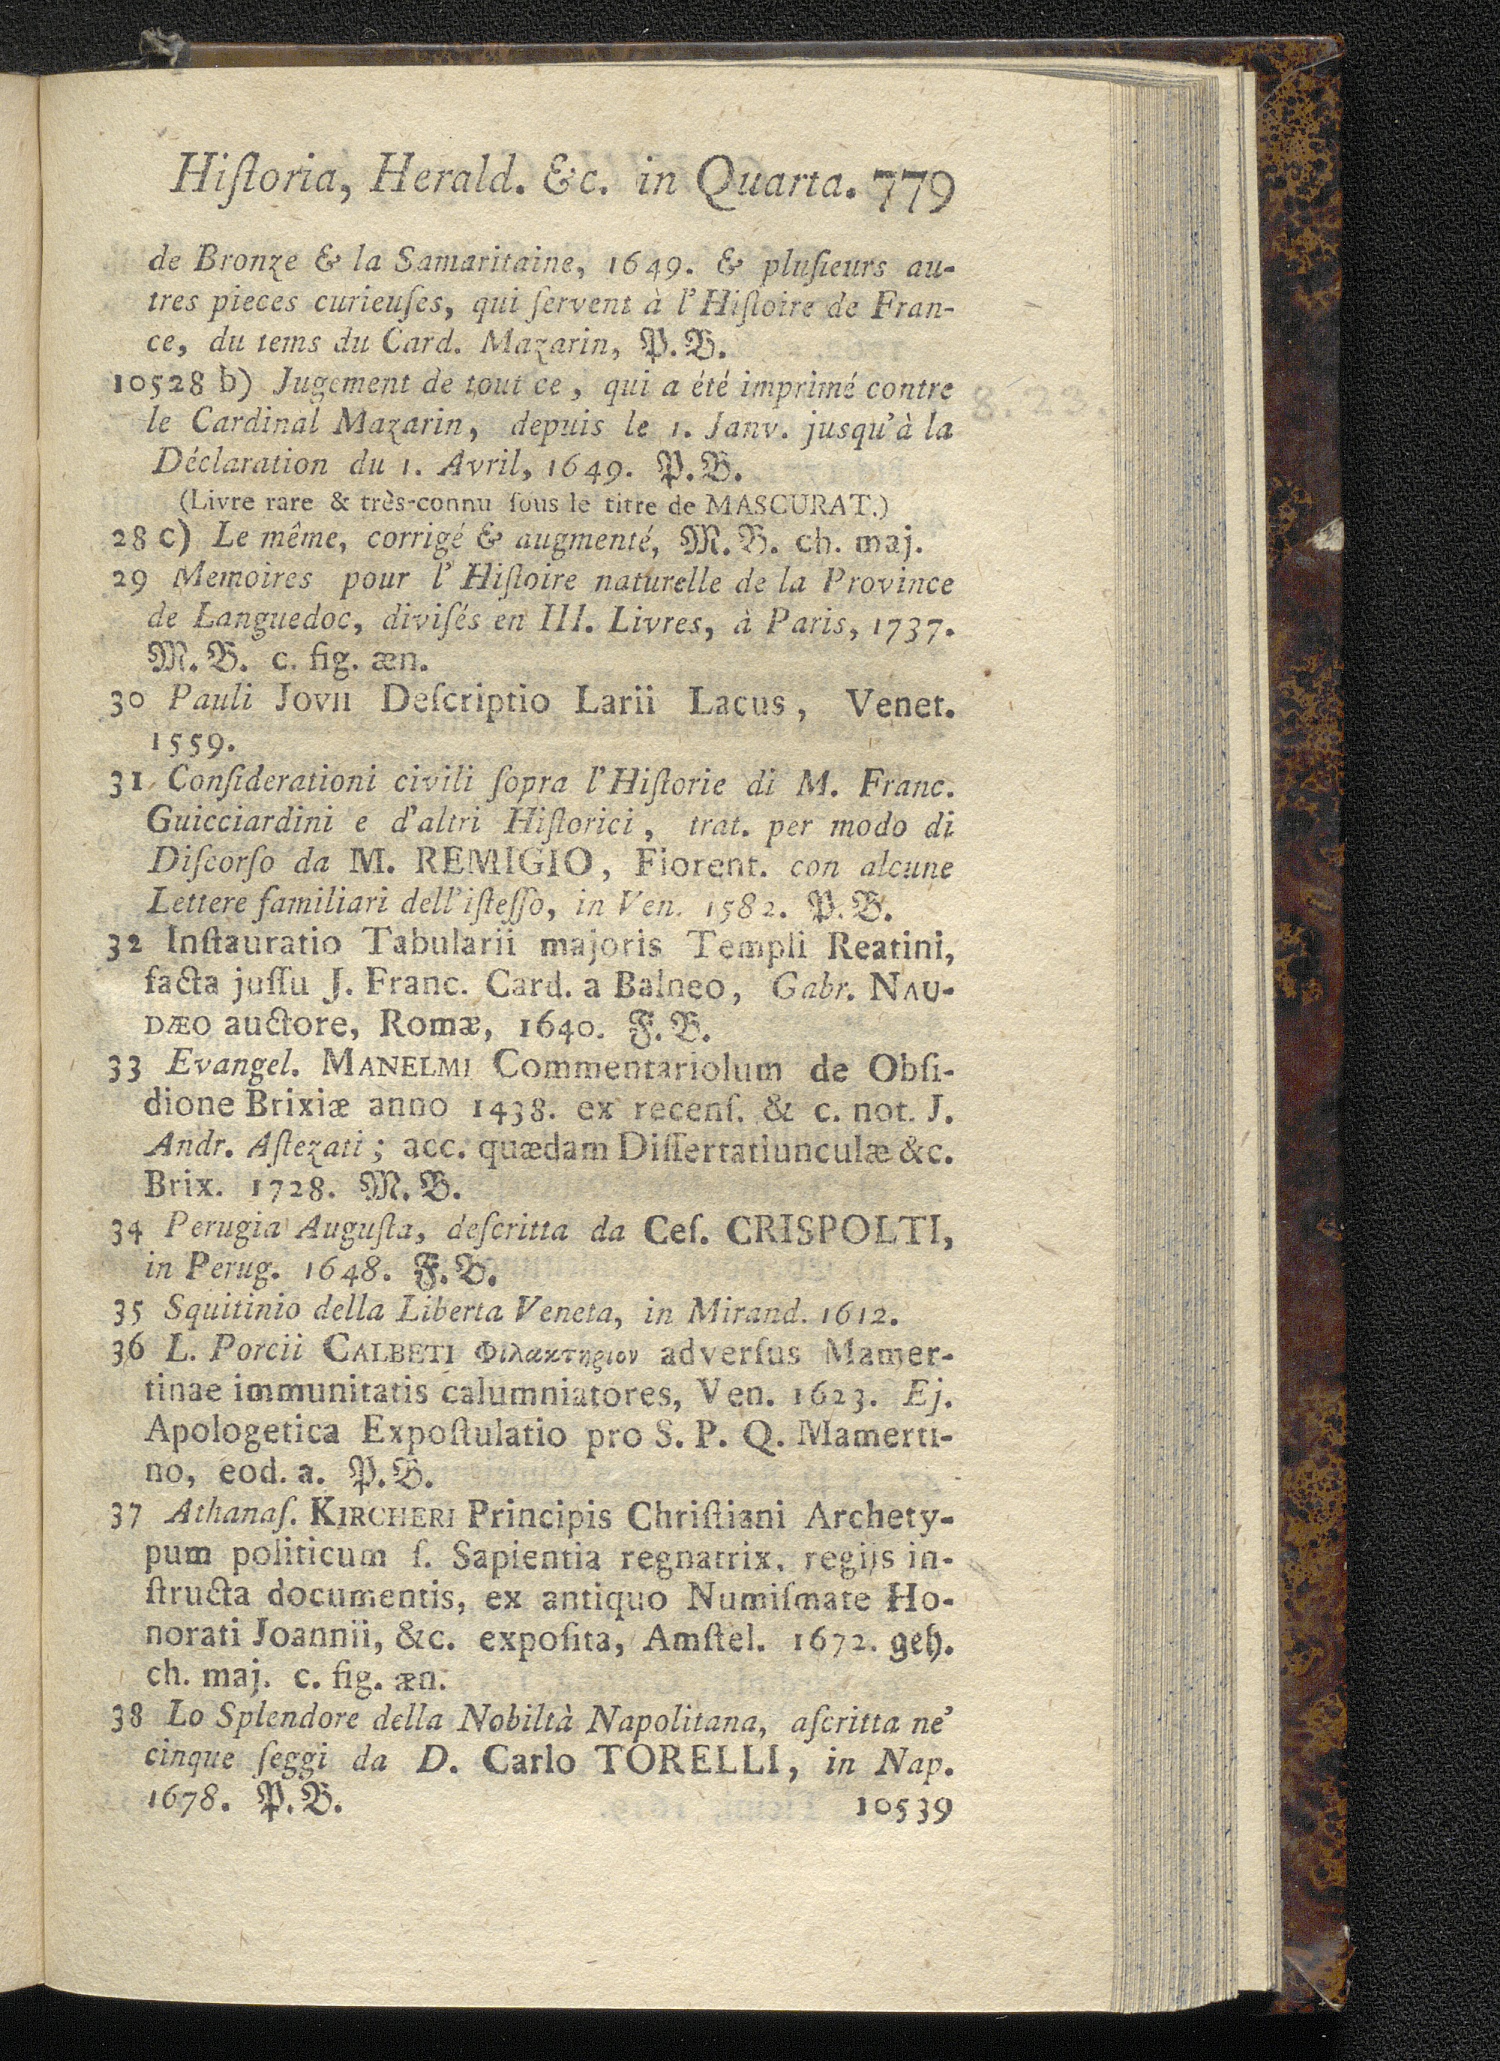 Hiſtoria, Herald. &c. in Quarta. 779
de Bronze & la Samaritaine, 1649. & pluſieurs au-
tres pieces curieuſes, qui ſervent à l'Hiſtoire de Fran-
ce, du tems du Card. Mazarin, P. B.
10528 b) Jugement de tout ce, qui a été imprimé contre
le Cardinal Mazarin, depuis le 1. Janv. jusqu'à la
Déclaration du 1. Avril, 1649. P. B.
(Livre rare & très-connu ſous le titre de MASCURAT.)
28 c) Le même, corrigé & augmenté, M. B. ch. maj.
29 Memoires pour l'Hiſtoire naturelle de la Province
de Languedoc, diviſés en III. Livres, à Paris, 1737.
M. B. c. fig. æn.
30 Pauli JOVII Deſcriptio Larii Lacus, Venet.
1559.
31 Conſiderationi civili ſopra l'Hiſtorie di M. Franc.
Guicciardini e d'altri Hiſtorici, trat. per modo di
Diſcorſo da M. REMIGIO, Fiorent. con alcune
Lettere familiari dell'iſteſſo, in Ven. 1582. P. B.
32 Inſtauratio Tabularii majoris Templi Reatini,
facta juſſu J. Franc. Card. a Balneo, Gabr. NAU-
DÆO auctore, Romæ, 1640. F. B.
33 Evangel. MANELMI Commentariolum de Obſi-
dione Brixiæ anno 1438. ex recenſ. & c. not. J.
Andr. Aſtezati; acc. quædam Diſſertatiunculæ &c.
Brix. 1728. M. B.
34 Perugia Auguſta, deſcritta da Ceſ. CRISPOLTI,
in Perug. 1648. F. B.
35 Squitinio della Liberta Veneta, in Mirand. 1612.
36 L. Porcii CALBETI Φιλακτηριον adverſus Mamer-
tinae immunitatis calumniatores, Ven. 1623. Ej.
Apologetica Expoſtulatio pro S. P. Q. Mamerti-
no, eod. a. P. B.
37 Athanaſ. KIRCHERI Principis Chriſtiani Archety-
pum politicum ſ. Sapientia regnatrix, regijs in-
ſtructa documentis, ex antiquo Numiſmate Ho-
norati Joannii, &c. expoſita, Amſtel. 1672. geh.
ch. maj. c. fig. æn.
38 Lo Splendore della Nobiltà Napolitana, aſcritta ne'
cinque ſeggi da D. Carlo TORELLI, in Nap.
1678. P. B.
10539